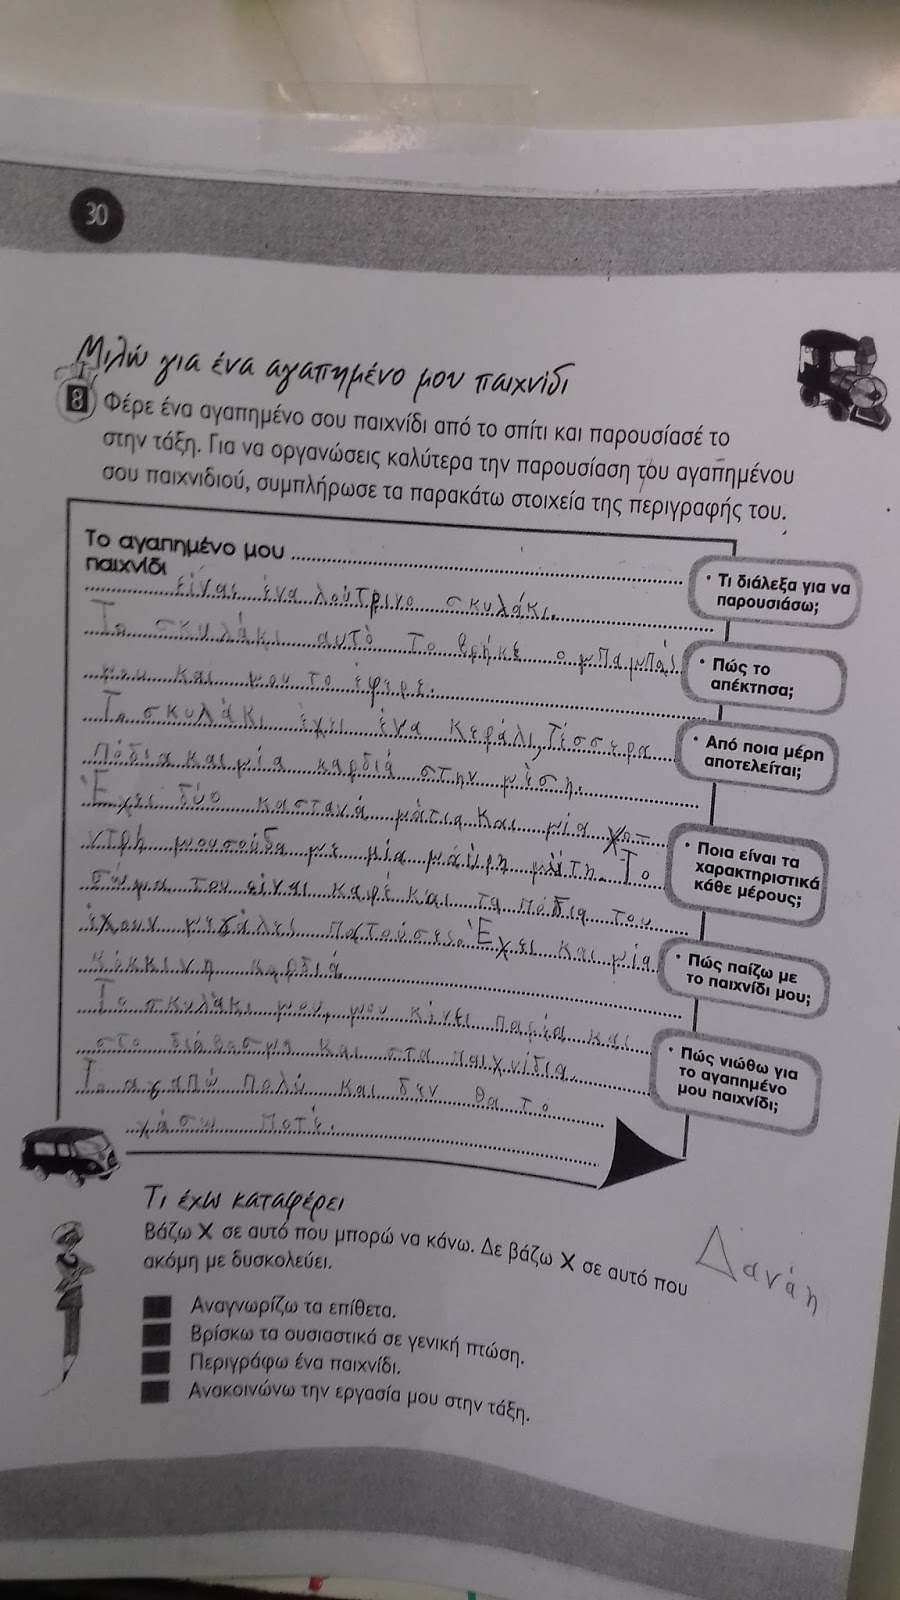 30
Μιλώ για ένα αγαπημένο μου παιχνίδι
8 Φέρε ένα αγαπημένο σου παιχνίδι από το σπίτι και παρουσίασέ το
στην τάξη. Για να οργανώσεις καλύτερα την παρουσίαση του αγαπημένου
σου παιχνιδιού, συμπλήρωσε τα παρακάτω στοιχεία της περιγραφής του.
Το αγαπημένο μου
παιχνίδι
είναι ένα λούτρινο σκυλάκι.
Το σκυλάκι αυτό το βρήκε ο μπαμπάς
μου και μου το έφερε.
Το σκυλάκι έχει ένα κεφάλι, τέσσερα
πόδια και μία καρδιά στην μέση.
Έχει δύο καστανά μάτια και μία χο-
ντρή μουσούδα με μία μαύρη μύτη. Το
σώμα του είναι καφέ και τα πόδια του
έχουν μεγάλες πατούσες. Έχει και μία
κόκκινη καρδιά.
Το σκυλάκι μου, μου κάνει παρέα και
στο διάβασμα και στα παιχνίδια.
Το αγαπώ πολύ και δεν θα το
χάσω ποτέ.
• Τι διάλεξα για να
παρουσιάσω;
• Πώς το
απέκτησα;
• Από ποια μέρη
αποτελείται;
• Ποια είναι τα
χαρακτηριστικά
κάθε μέρους;
• Πώς παίζω με
το παιχνίδι μου;
• Πώς νιώθω για
το αγαπημένο
μου παιχνίδι;
Τι έχω καταφέρει
Βάζω X σε αυτό που μπορώ να κάνω. Δε βάζω X σε αυτό που
ακόμη με δυσκολεύει.
Αναγνωρίζω τα επίθετα.
Βρίσκω τα ουσιαστικά σε γενική πτώση.
Περιγράφω ένα παιχνίδι.
Ανακοινώνω την εργασία μου στην τάξη.
Δανάη